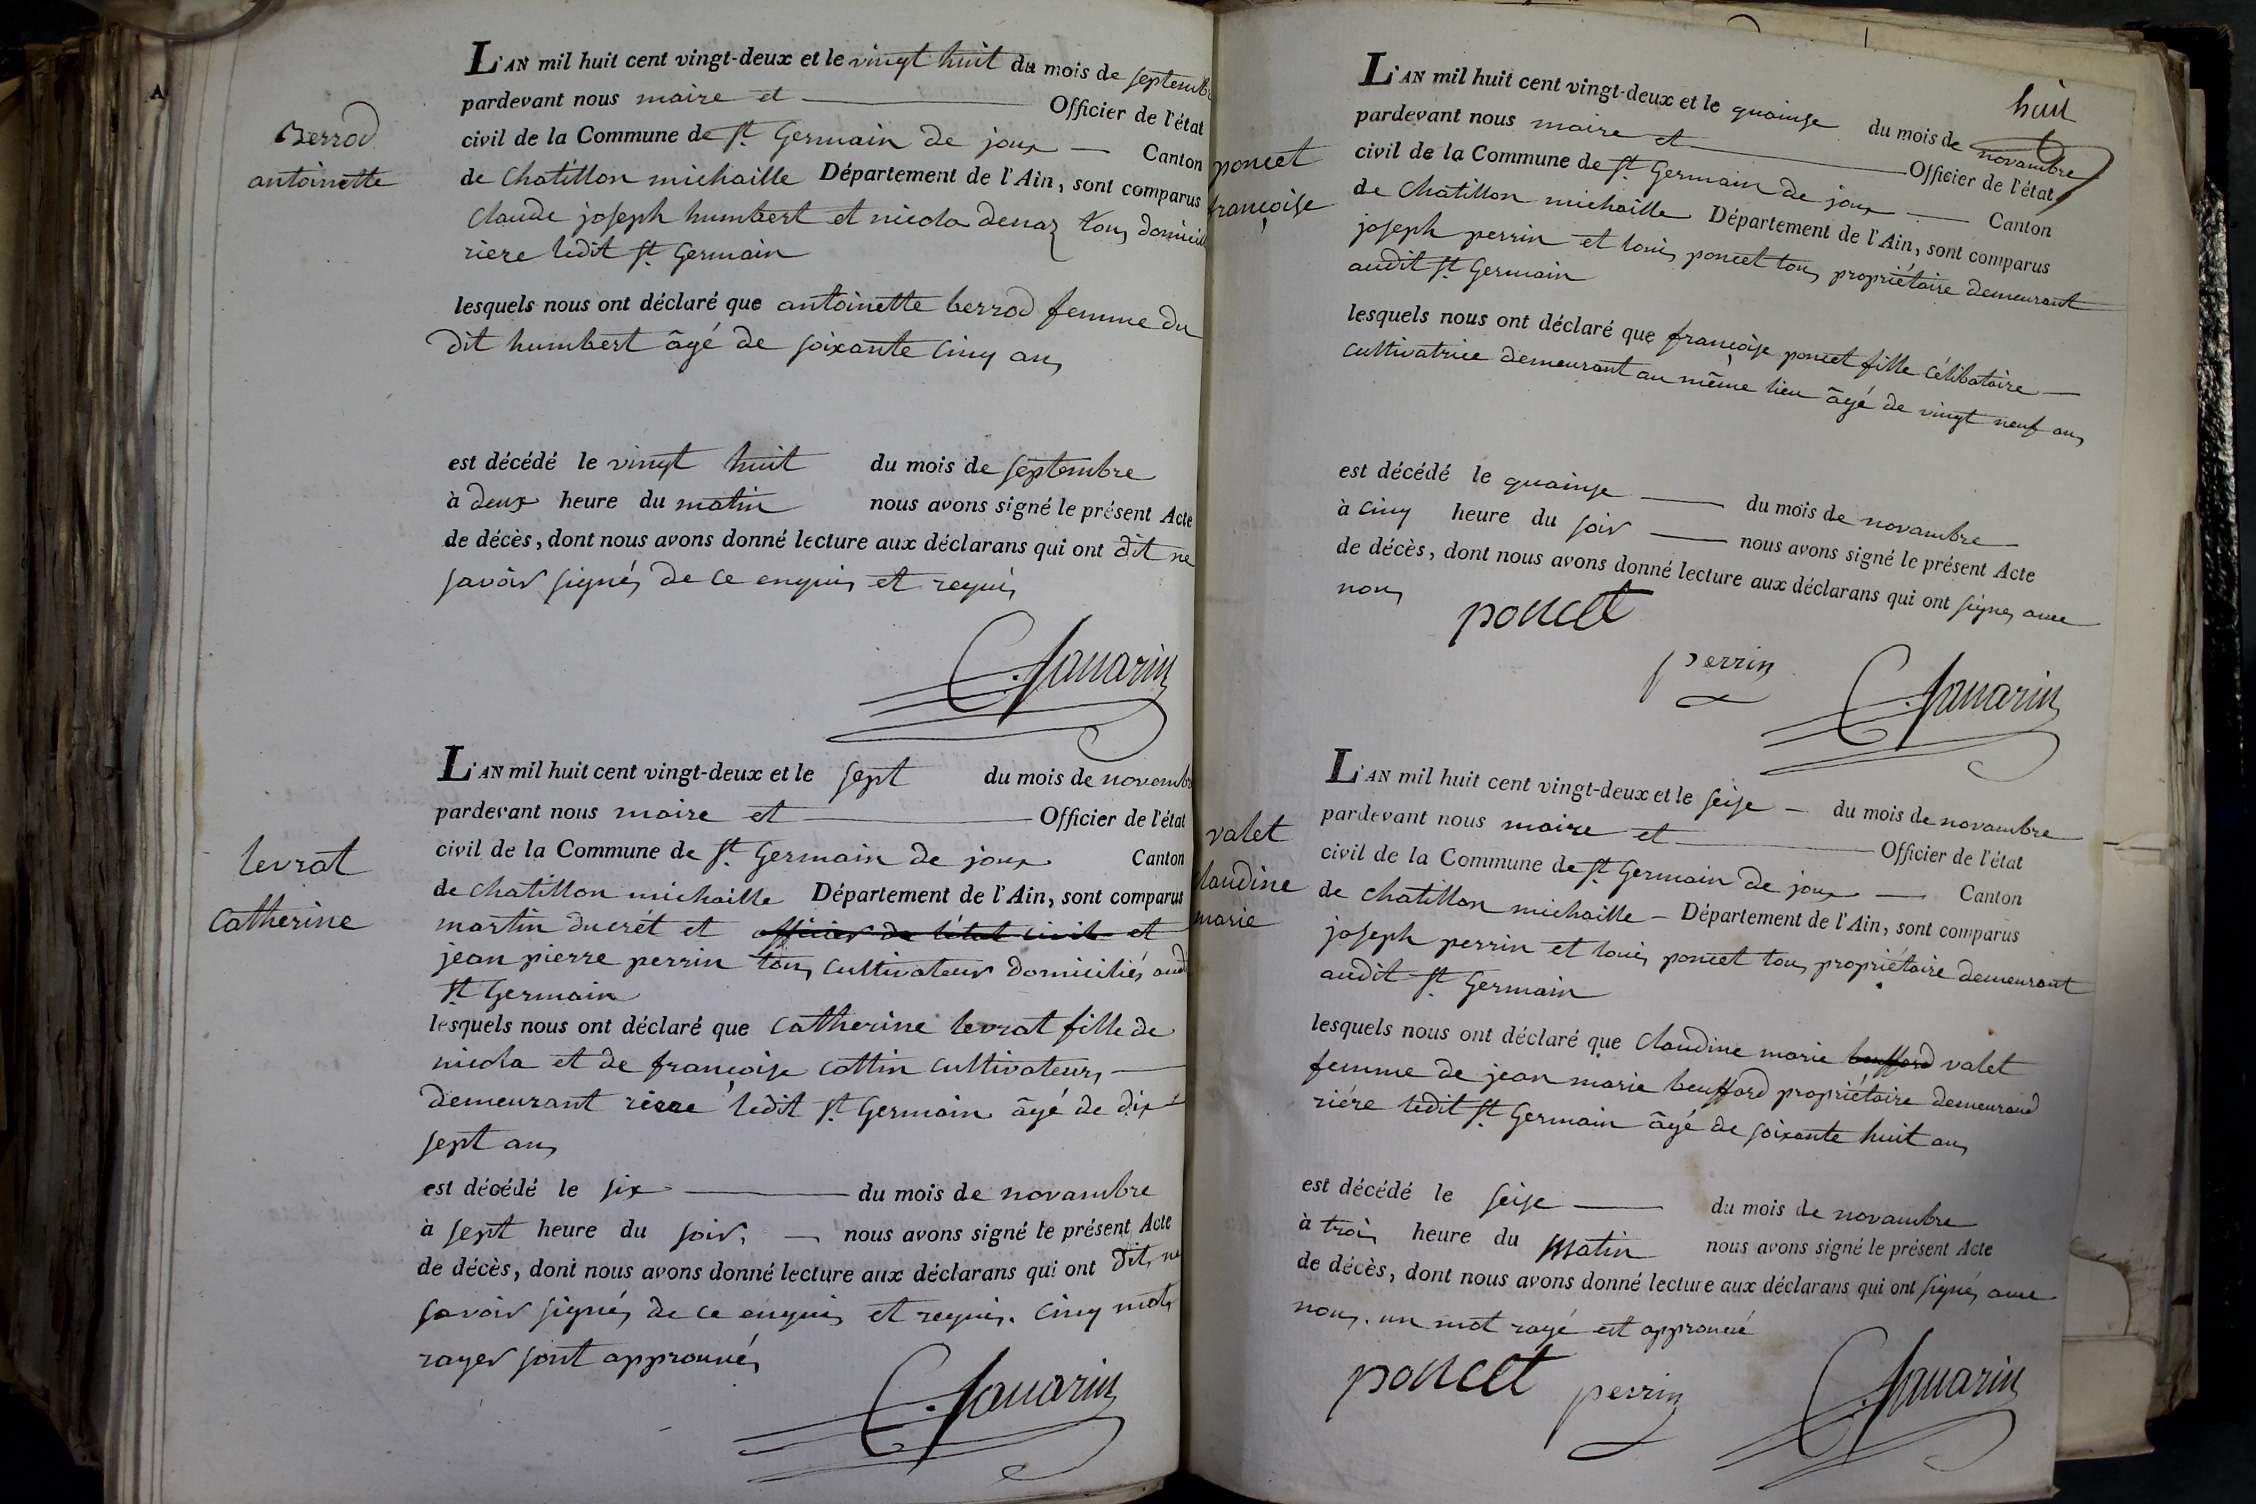 Berrod
antoinette
L'AN mil huit cent vingt-deux et le vingt huit du mois de septembre
pardevant nous maire et Officier de l'état
civil de la Commune de St. Germain de joux Canton
de chatillon michaille Département de l'Ain, sont comparus
Claude joseph humbert et nicola denaz tous
riere ledit St. Germain
lesquels nous ont déclaré que antoinette berrod femme du
dit humbert âgé de soixante cinq ans
est décédé le vingt huit du mois de septembre
à deux heure du matin nous avons signé le présent Acte
de décès, dont nous avons donné lecture aux déclarans qui ont dit ne
savoir signés de ce enquis et requis
C. Savarin
levrat
Catherine
L'AN mil huit cent vingt-deux et le sept du mois de novambre
pardevant nous maire et Officier de l'état
civil de la Commune de St. Germain de joux Canton
de chatillon michaille Département de l'Ain, sont comparus
martin ducrét et officier de l'état civil et
jean pierre perrin tous cultivateur domiciliés audit
St. Germain
lesquels nous ont déclaré que Catherine levrat fille de
nicola et de françoise cottin cultivateurs
demeurant riere ledit St. Germain âgé de dix
sept ans
est décédé le six du mois de novambre
à sept heure du soir, nous avons signé le présent Acte
de décès, dont nous avons donné lecture aux déclarans qui ont dit ne
savoir signés de ce enquis et requis. cinq mots
rayer sont approuvés
C. Savarin
huit
poncet
françoise
L'AN mil huit cent vingt-deux et le quainse du mois de novambre
pardevant nous maire et Officier de l'état
civil de la Commune de St. Germain de joux Canton
de chatillon michaille Département de l'Ain, sont comparus
joseph perrin et louis poncet tous propriétaire demeurant
audit St. Germain
lesquels nous ont déclaré que françoise poncet fille célibataire
cultivatrice demeurant au même lieu âgé de vingt neuf ans
est décédé le quainse du mois de novambre
à cinq heure du soir nous avons signé le présent Acte
de décès, dont nous avons donné lecture aux déclarans qui ont signés avec
nous
poncet
perrin
C. Savarin
valet
claudine
marie
L'AN mil huit cent vingt-deux et le seise du mois de novambre
pardevant nous maire et Officier de l'état
civil de la Commune de St. Germain de joux Canton
de chatillon michaille Département de l'Ain, sont comparus
joseph perrin et louis poncet tous propriétaire demeurant
audit St. Germain
lesquels nous ont déclaré que Claudine marie beufford valet
femme de jean marie beufford propriétaire demeurand
riére ledit St. Germain âgé de soixante huit ans
est décédé le seise du mois de novambre
à trois heure du matin nous avons signé le présent Acte
de décès, dont nous avons donné lecture aux déclarans qui ont signés avec
nous. un mot rayé est approuvé
poncet
perrin
C. Savarin